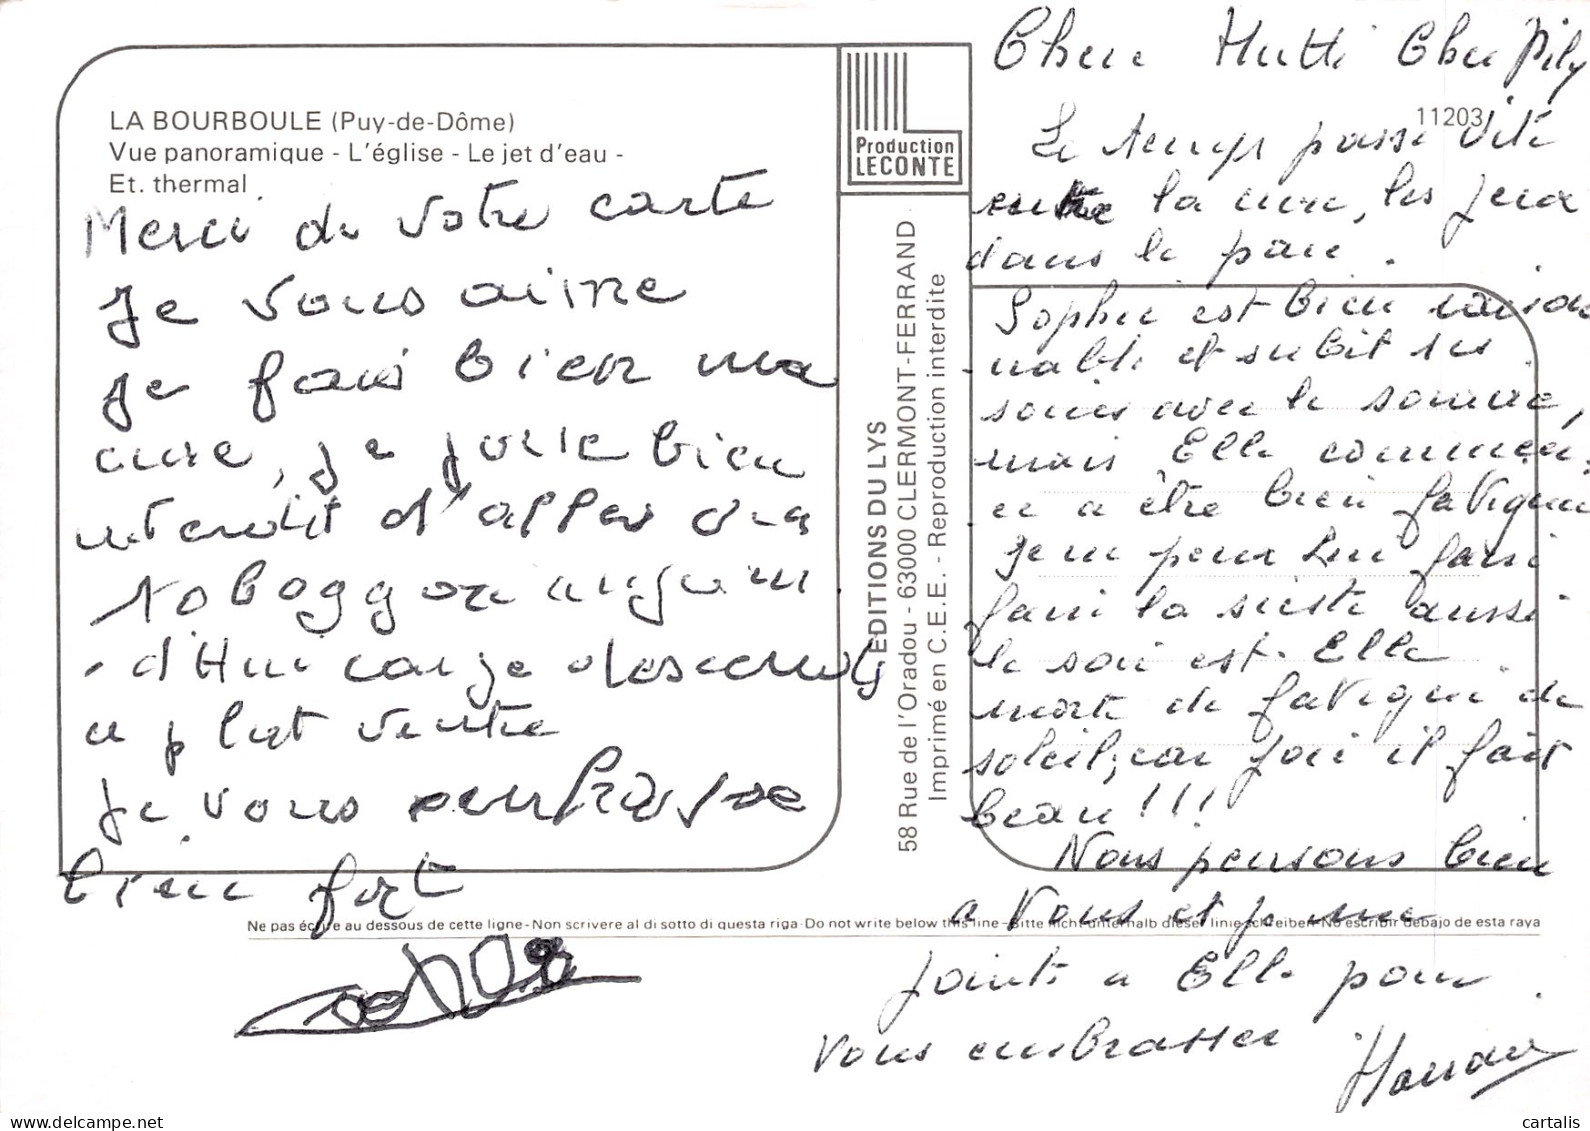 LA BOURBOULE (Puy-de-Dôme)
Vue panoramique - L'église - Le jet d'eau -
Et. thermal
Merci de votre carte
Je vous aime
Je fais bien ma
cure, je joue bien
d'aller
Toboggon aujour
d'Hui car je descends
a plat ventre
Je vous embrasse
bien fort
Sophie
Production
LECONTE
EDITIONS DU LYS
58 Rue de l'Oradou - 63000 CLERMONT-FERRAND
Imprimé en C.E.E. - Reproduction interdite
11203
Chere Mutti Cher Pily
Le temps passe vite
entre la cure, les jeux
dans le parc.
Sophie est bien raison
nable et subit ses
soins avec le sourire,
mais Elle commen
ce a être bien fatiguée
Je ne peux Lui faire
faire la sieste aussi
le soir est-Elle
morte de fatigue de
soleil, car il fait
beau !!!
Nous pensons bien
a Vous et je me
joints a Elle pour
Vous embrasser
Ne pas écrire au dessous de cette ligne - Non scrivere al di sotto di questa riga - Do not write below this line - Bitte nicht unterhalb dieser linie schreiben - No escribir debajo de esta raya
cartalis.com